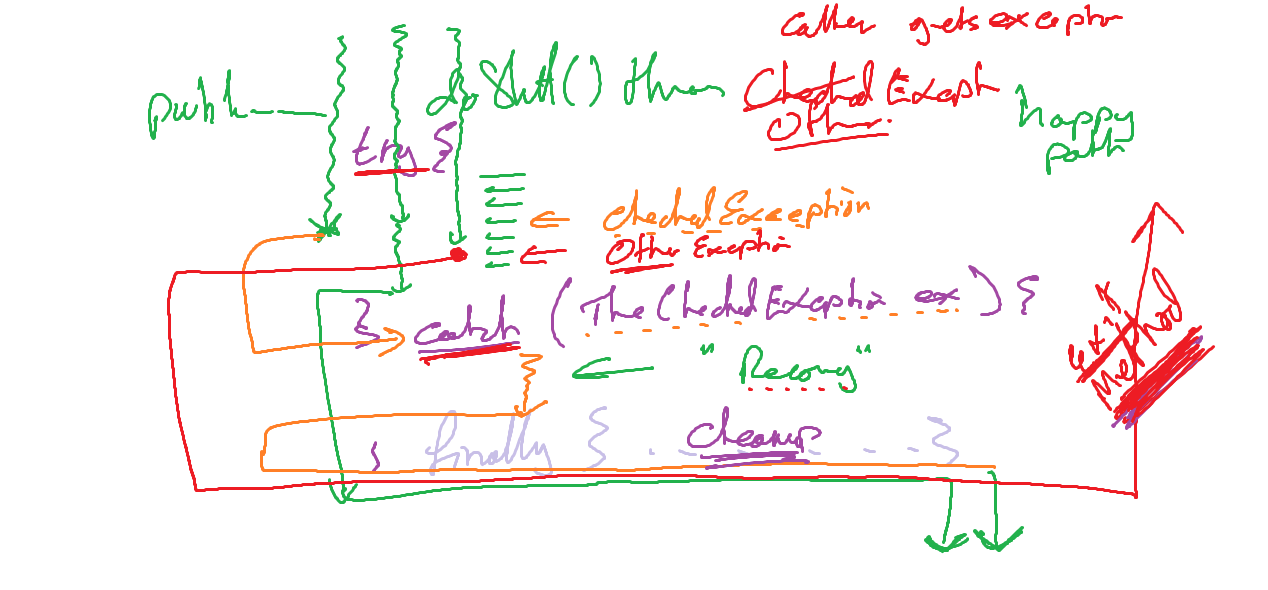 Caller gets exceptn
doStuff() throws CheckedExceptn
Other.
happy
path
try {
CheckedException
Other Exception
} catch (TheCheckedException ex) {
"Recovery"
} finally { . cleanup . . }
exit
Method